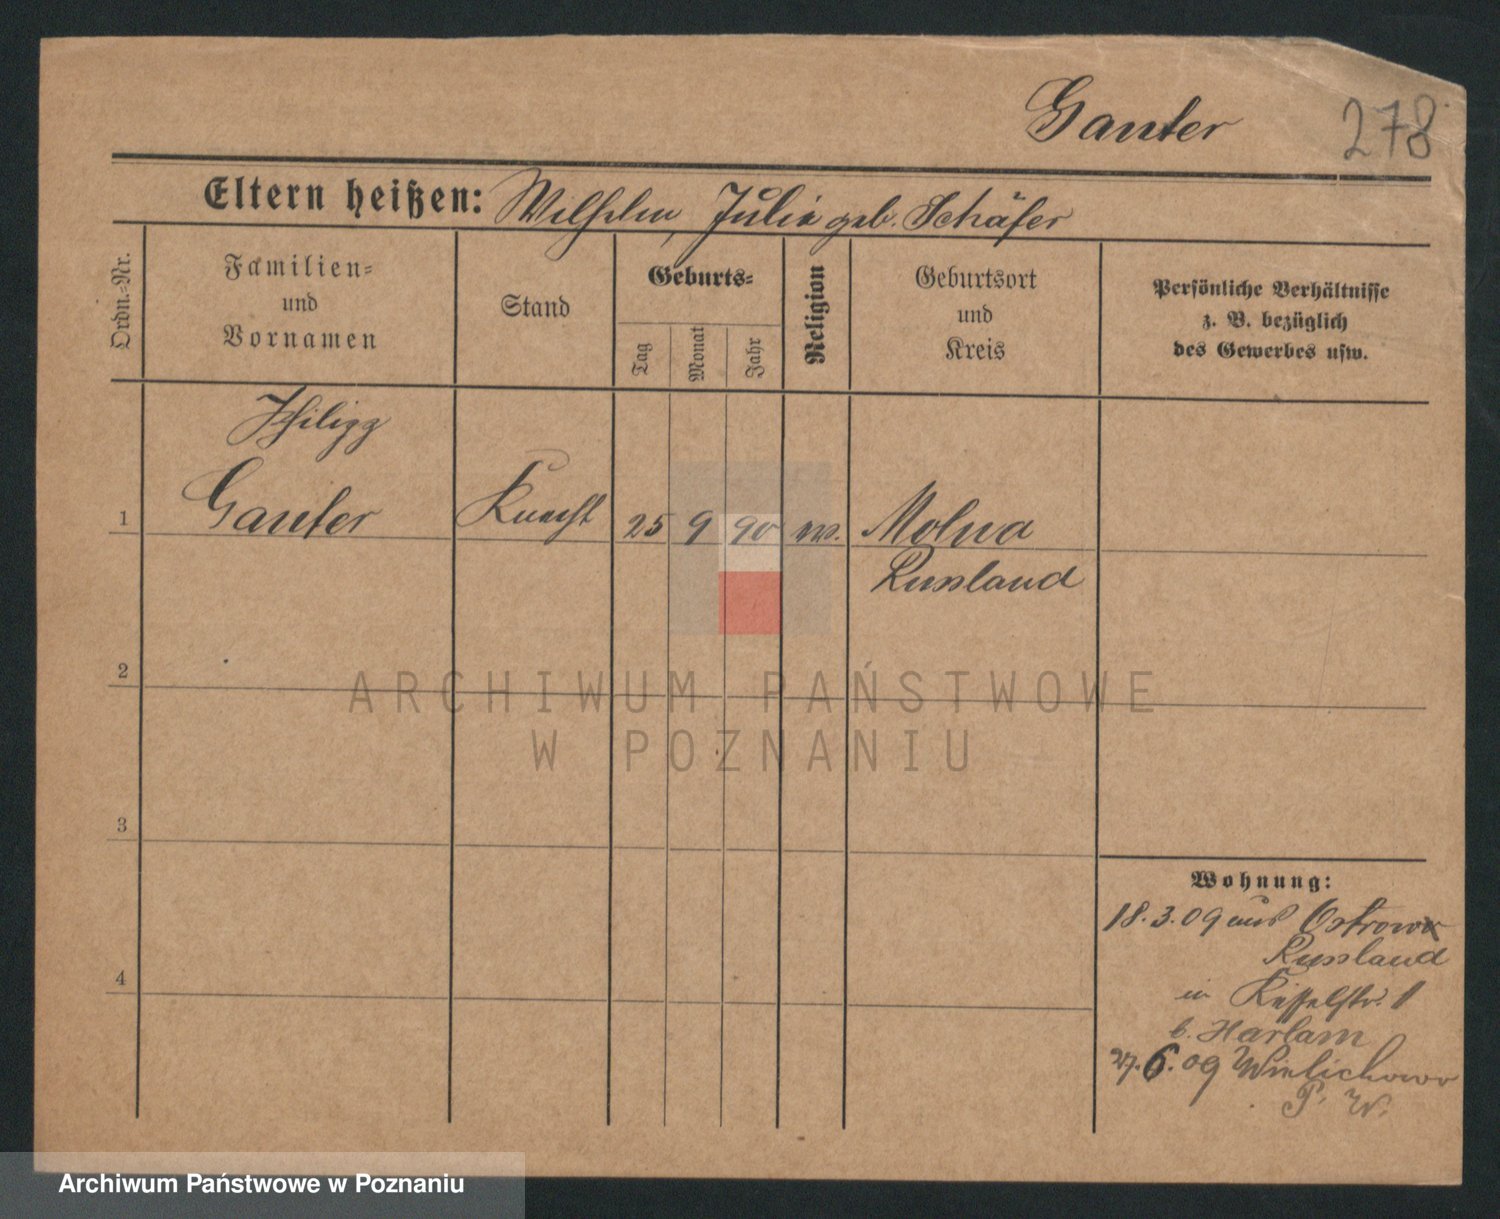 Ganter
278
Eltern heißen: Wilhelm, Julie geb. Schäfer
Ordn.-Nr.
Familien-
und
Vornamen
Stand
Geburts-
Tag
Monat
Jahr
Religion
Geburtsort
und
Kreis
Persönliche Verhältnisse
z. B. bezüglich
des Gewerbes usw.
Philipp
1 Ganter Knecht 25 9 90 Molna
Russland
2
3
4
ARCHIWUM PAŃSTWOWE
W POZNANIU
Wohnung:
18.3.09 aus Ostrowo
Russland
in 1
b. Harlam
27.6.09 Wielichowo
P. W.
Archiwum Państwowe w Poznaniu